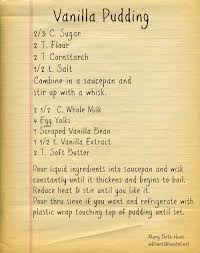 Vanilla Pudding
2/3 C. Sugar
2 T. Flour
2 T Cornstarch
1/2 t. Salt
Combine in a saucepan and
stir up with a whisk.
2 1/2 C. Whole Milk
4 Egg Yolks
1 Scraped Vanilla Bean
1 1/2 t. Vanilla Extract
2 T. Soft Butter
Pour liquid ingredients into saucepan and wisk
constantly until it thickens and begins to boil.
Reduce heat & stir until you like it.
Pour thru sieve if you want and refrigerate with
plastic wrap touching top of pudding until set.
Mary Beth Hunt